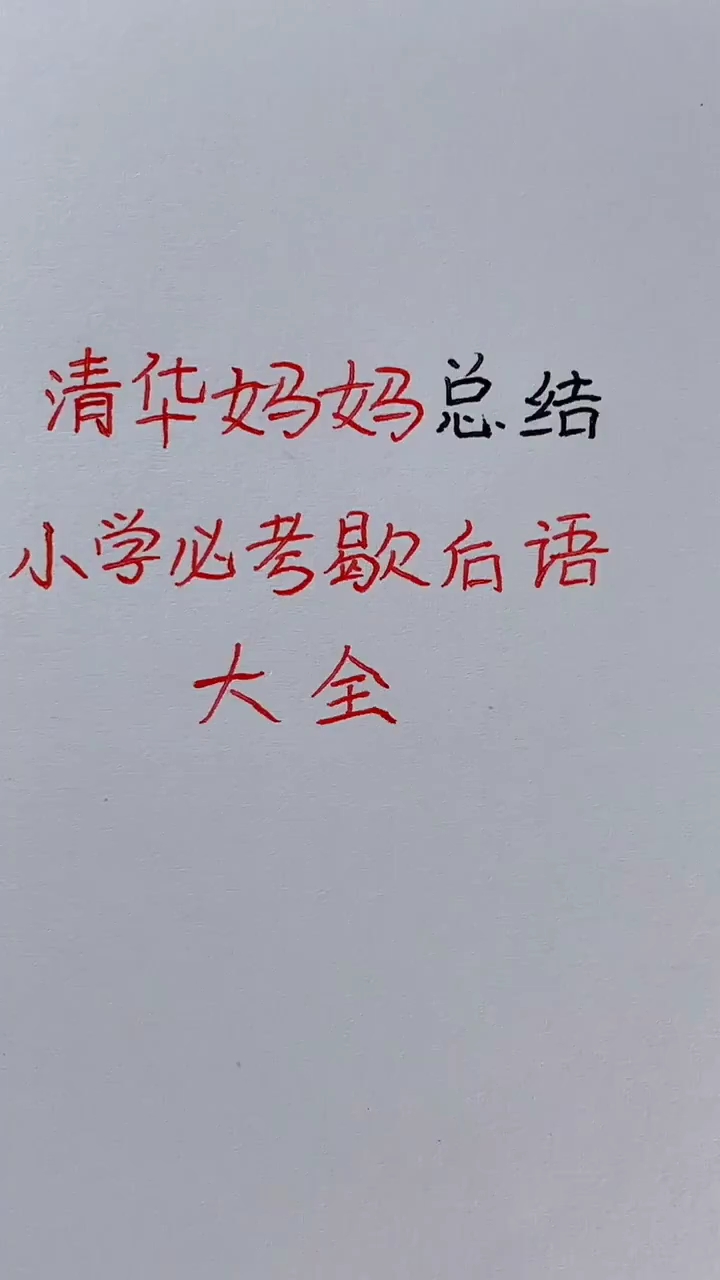 清华妈妈总结
小学必考歇后语
大全